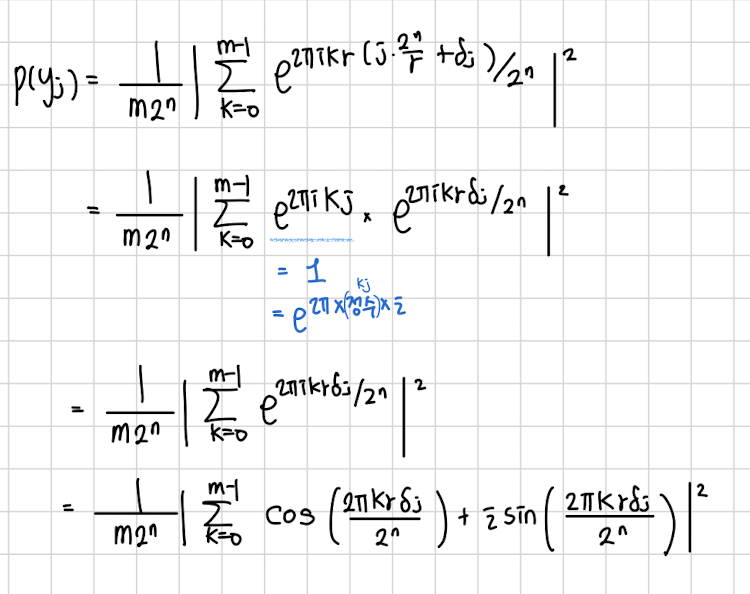 p(yⱼ) = 1/(m2ⁿ) | Σ_{k=0}^{m-1} e^{2πikr(j·2ⁿ/r + δⱼ)/2ⁿ} |²
= 1/(m2ⁿ) | Σ_{k=0}^{m-1} e^{2πikj} × e^{2πikrδⱼ/2ⁿ} |²
= 1
= e^{2π×(정수)×i} kj
= 1/(m2ⁿ) | Σ_{k=0}^{m-1} e^{2πikrδⱼ/2ⁿ} |²
= 1/(m2ⁿ) | Σ_{k=0}^{m-1} cos(2πkrδⱼ/2ⁿ) + i sin(2πkrδⱼ/2ⁿ) |²